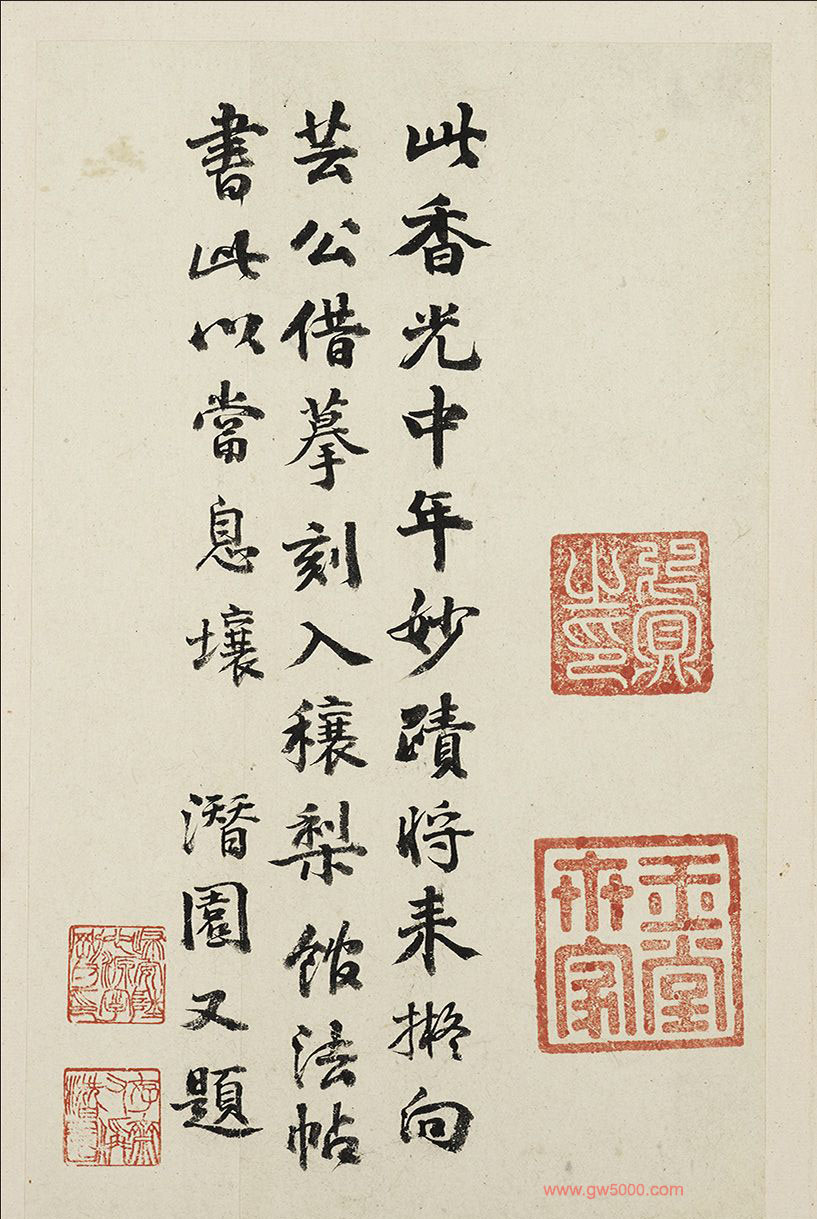 此香光中年妙蹟將来擬向
芸公借摹刻入穰梨館法帖
書此以當息壤 潛園又題
玉堂
世家
www.gw5000.com